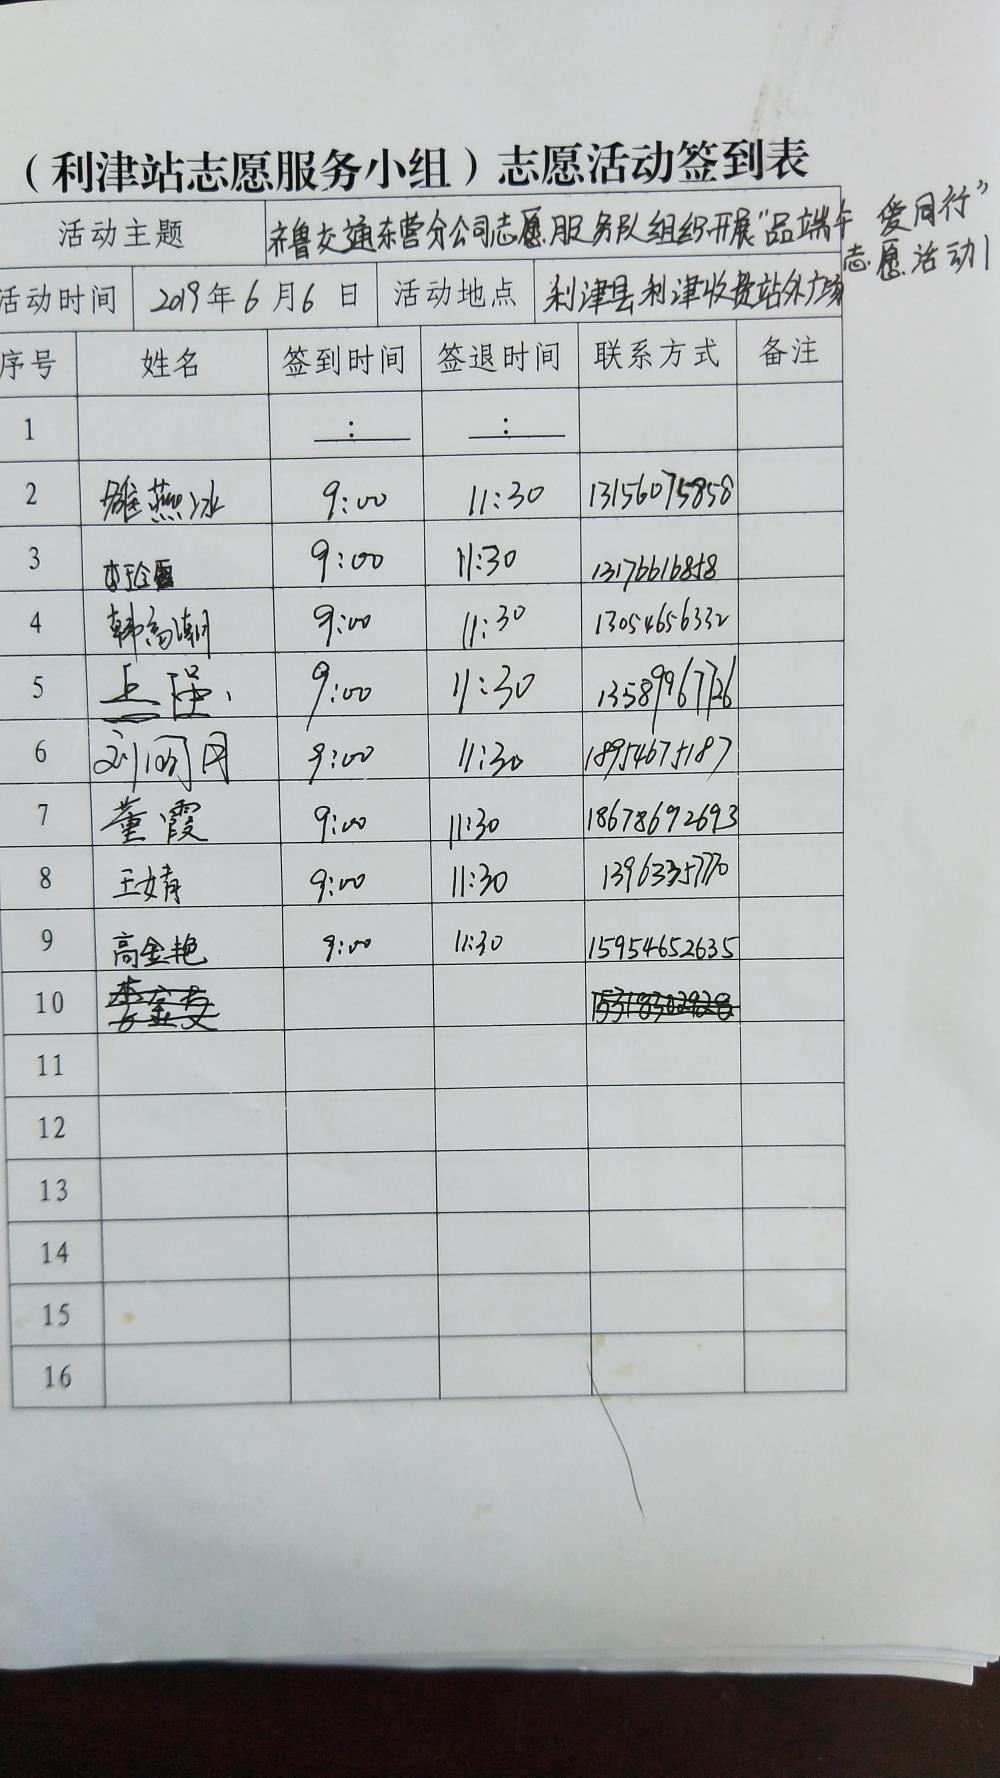 （利津站志愿服务小组）志愿活动签到表
活动主题 齐鲁交通东营分公司志愿服务队组织开展“品端午 爱同行”
志愿活动
活动时间 2019年6月6日 活动地点 利津县利津收费站外广场
序号 姓名 签到时间 签退时间 联系方式 备注
1 : :
2 燕冰 9:00 11:30 13156075858
3 9:00 11:30 13176616858
4 韩高潮 9:00 11:30 13054656332
5 王强 9:00 11:30 13589967726
6 刘 9:00 11:30 18954675187
7 董霞 9:00 11:30 18678692693
8 王婧 9:00 11:30 13963357770
9 高金艳 9:00 11:30 15954652635
10
11
12
13
14
15
16